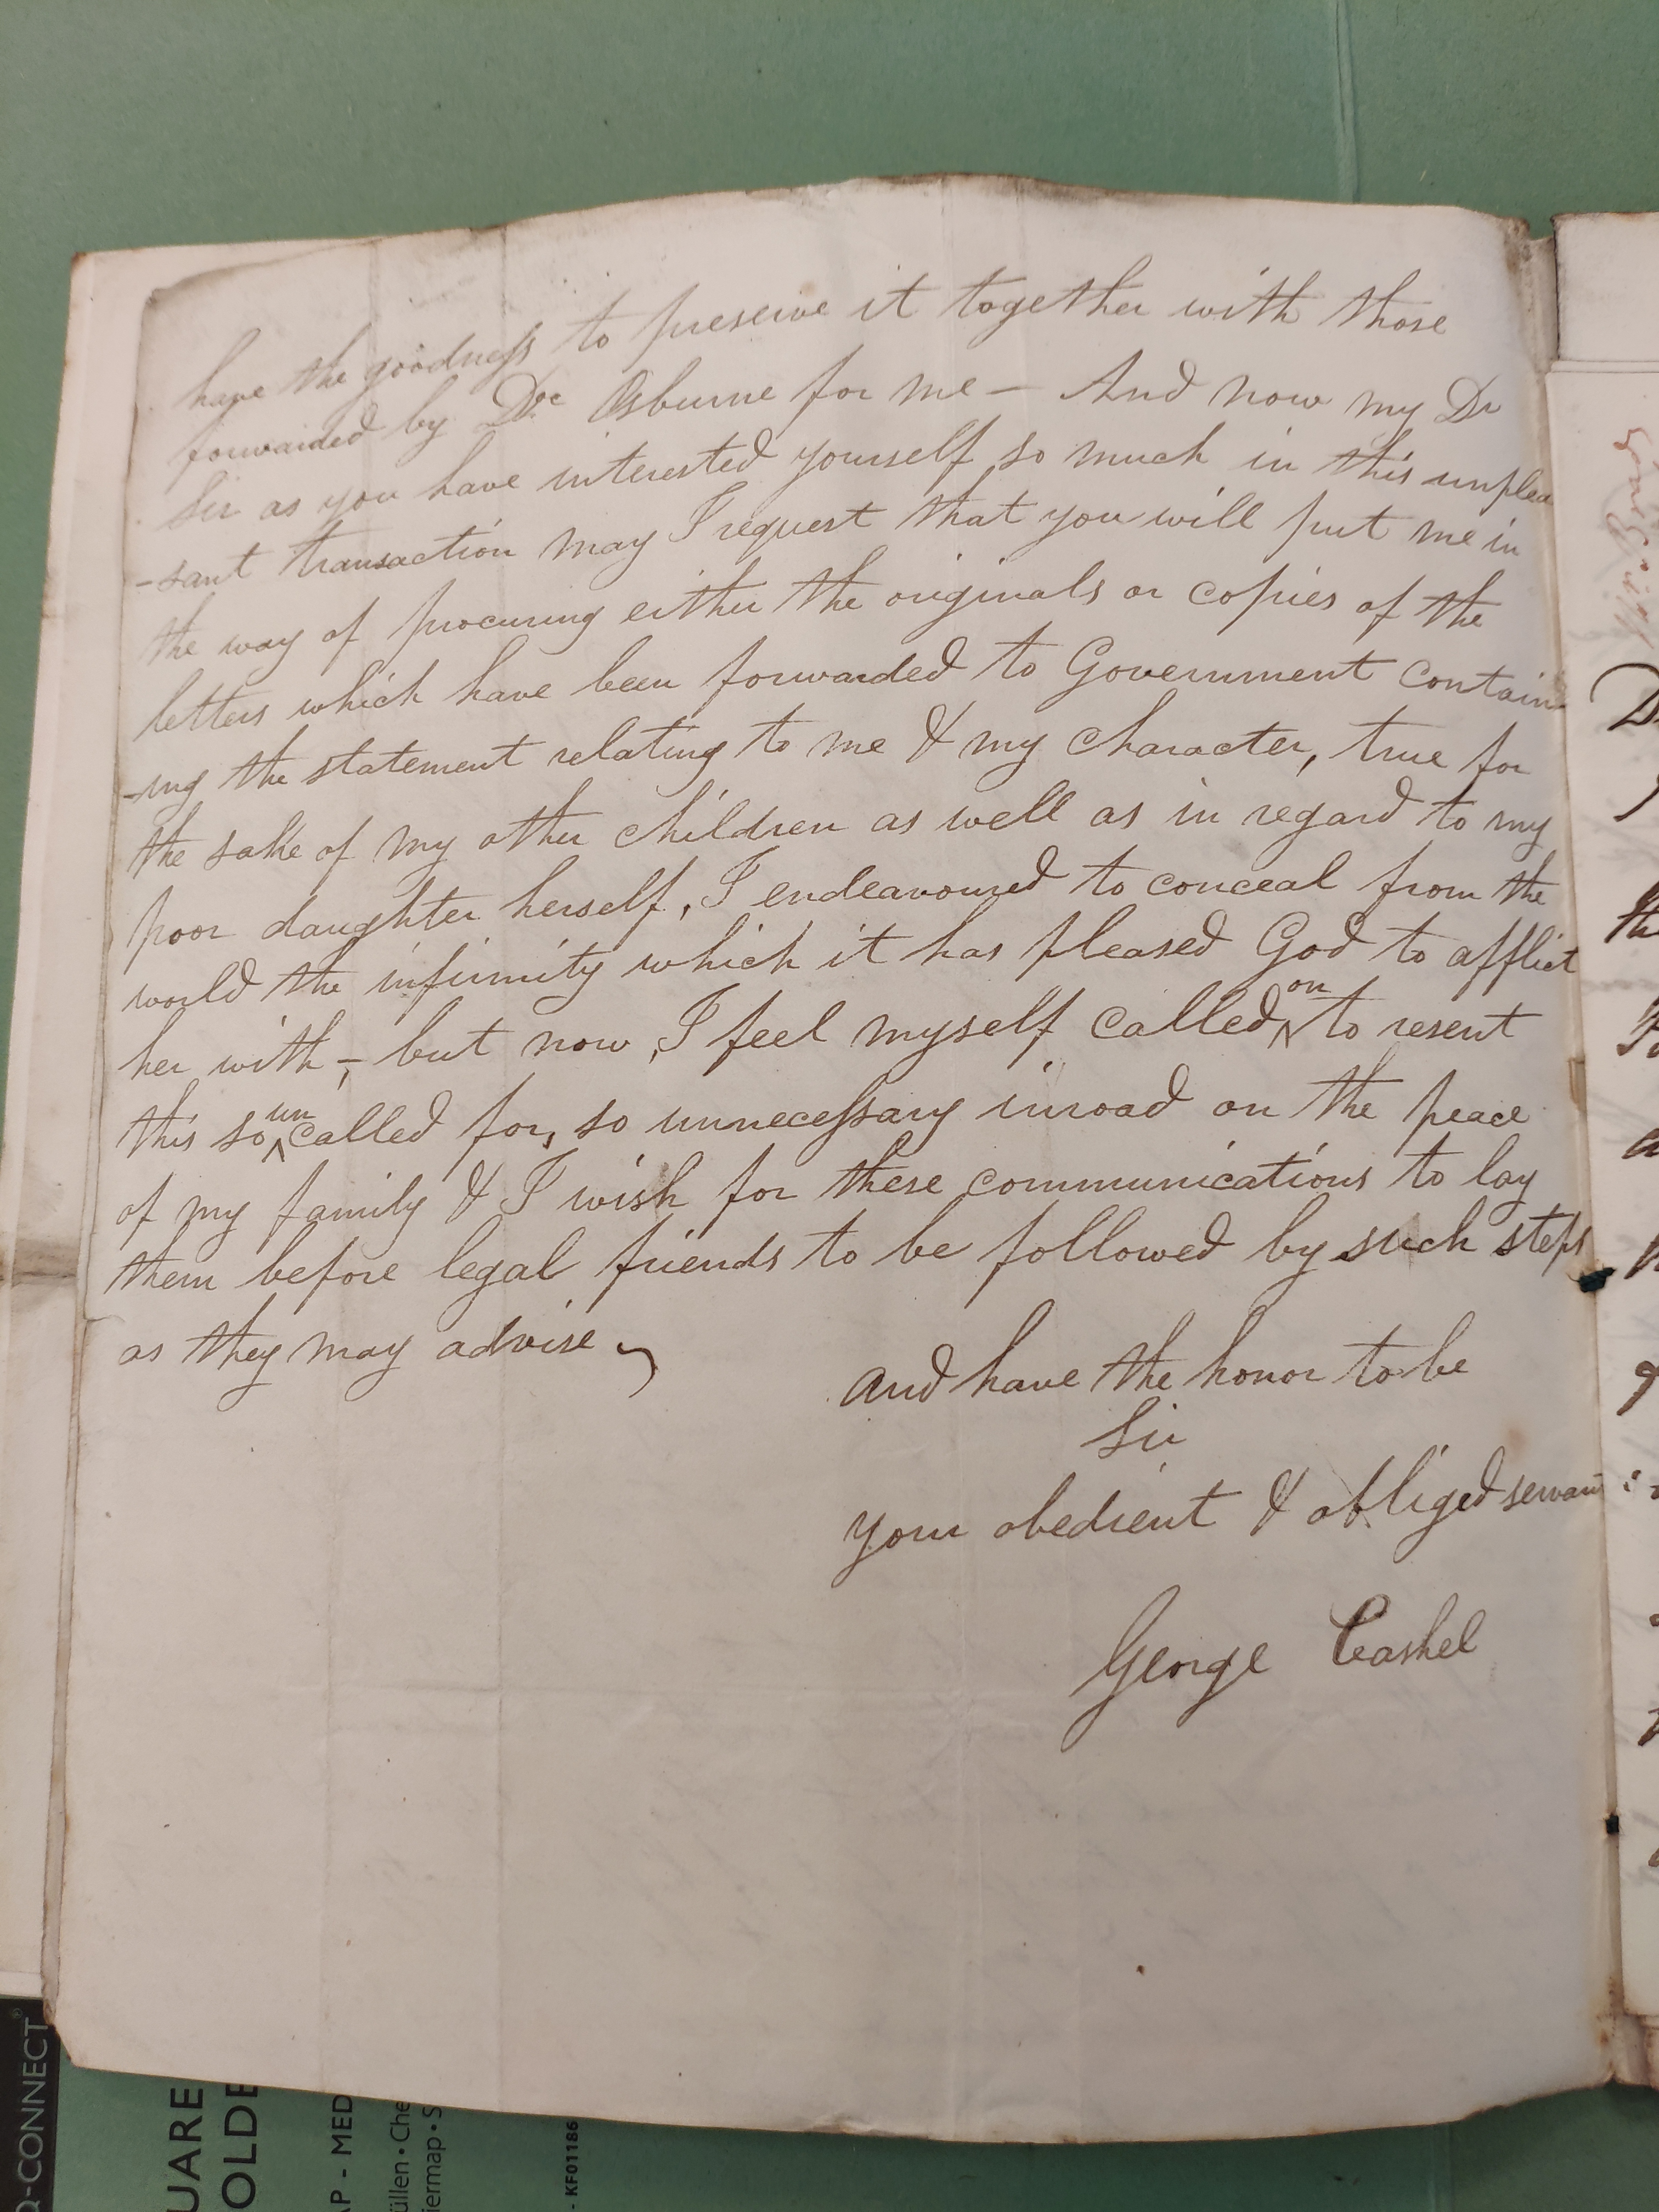 have the goodness to preserve it together with those
forwarded by Doc Osburne for me — And now my Dr
Sir as you have interested yourself so much in this unplea
-sant transaction may I request that you will put me in
the way of procuring either the originals or copies of the
letters which have been forwarded to Government contain
-ing the statement relating to me & my character, true for
the sake of my other children as well as in regard to my
poor daughter herself, I endeavoured to conceal from the
world the infirmity which it has pleased God to afflict
her with, — but now, I feel myself called on to resent
this so uncalled for, so unnecessary inroad on the peace
of my family & I wish for these communications to lay
them before legal friends to be followed by such steps
as they may advise
and have the honor to be
Sir
your obedient & obliged servant
George Cashel
Q-CONNECT
UARE
OLDE
AP - MED
üllen • Che
iermap • S
- KF01186